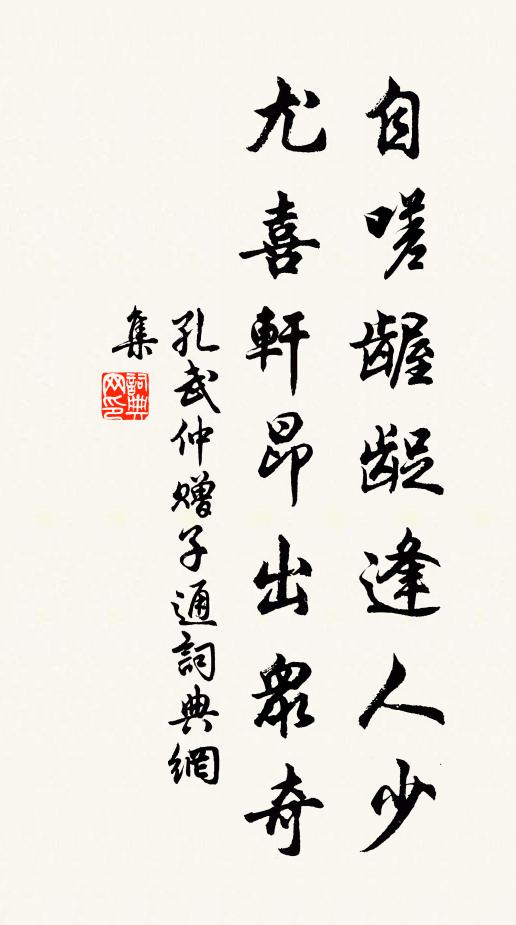 自嗟齷齪逢人少
尤喜軒昂出眾奇
孔武仲贈子通詞典網
集
詞典网印